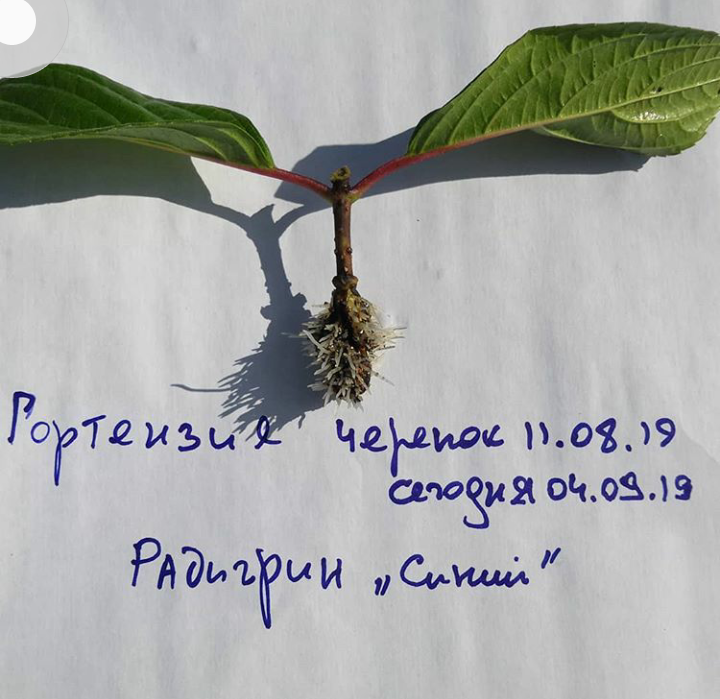 Гортензия черенок 11.08.19
сегодня 04.09.19
Радигрин „Синий”